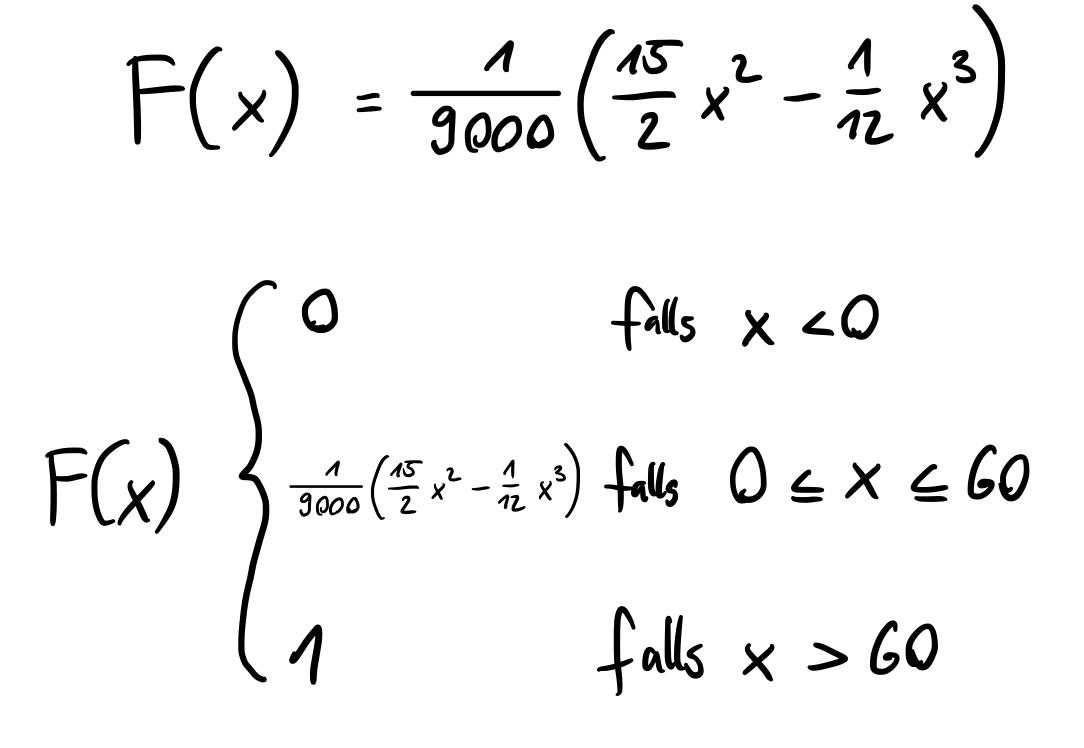 F(x) = 1/9000 (15/2 x² − 1/12 x³)
0 falls x < 0
F(x) { 1/9000 (15/2 x² − 1/12 x³) falls 0 ≤ x ≤ 60
1 falls x > 60